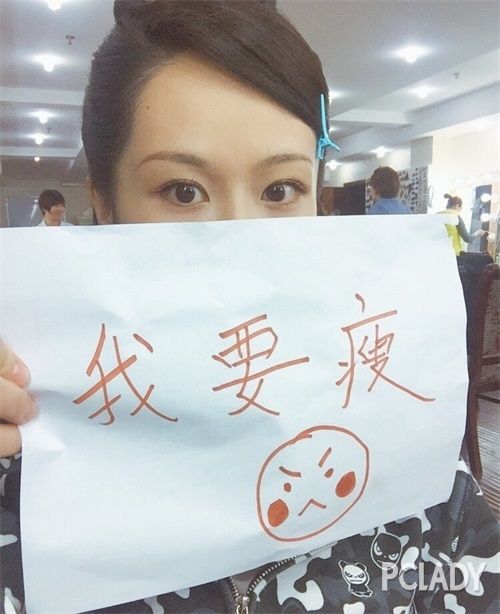 我要瘦
PCLADY